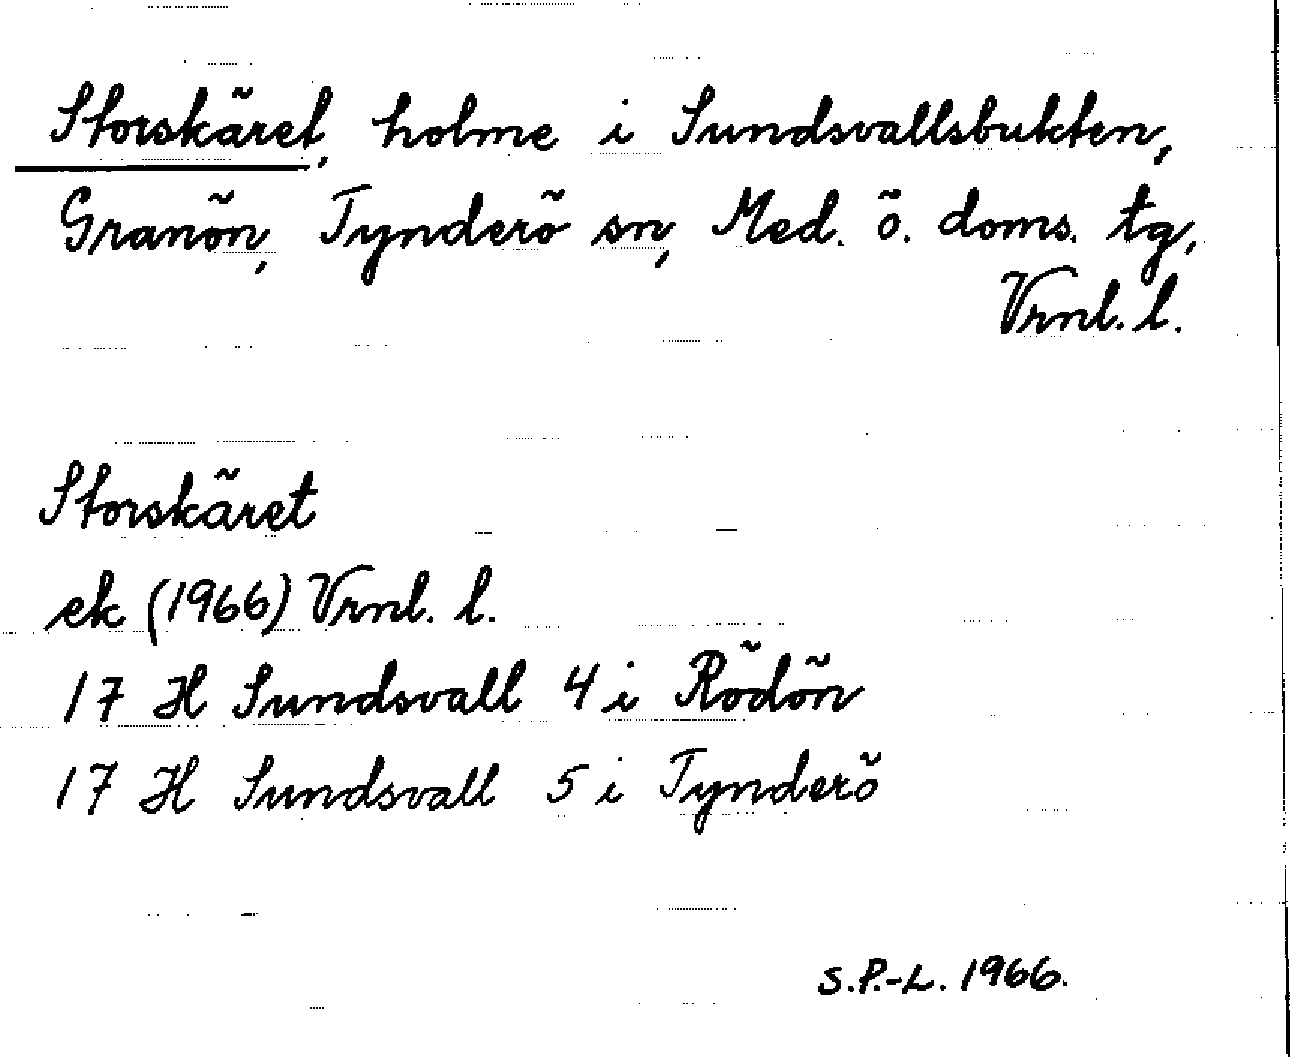 Storskäret, holme i Sundsvallsbukten,
Granön, Tynderö sn, Med. ö. doms. tg,
Vrnl. l.
Storskäret
ek (1966) Vrnl. l.
17 H Sundsvall 4 i Rödön
17 H Sundsvall 5 i Tynderö
S.P.-L. 1966.